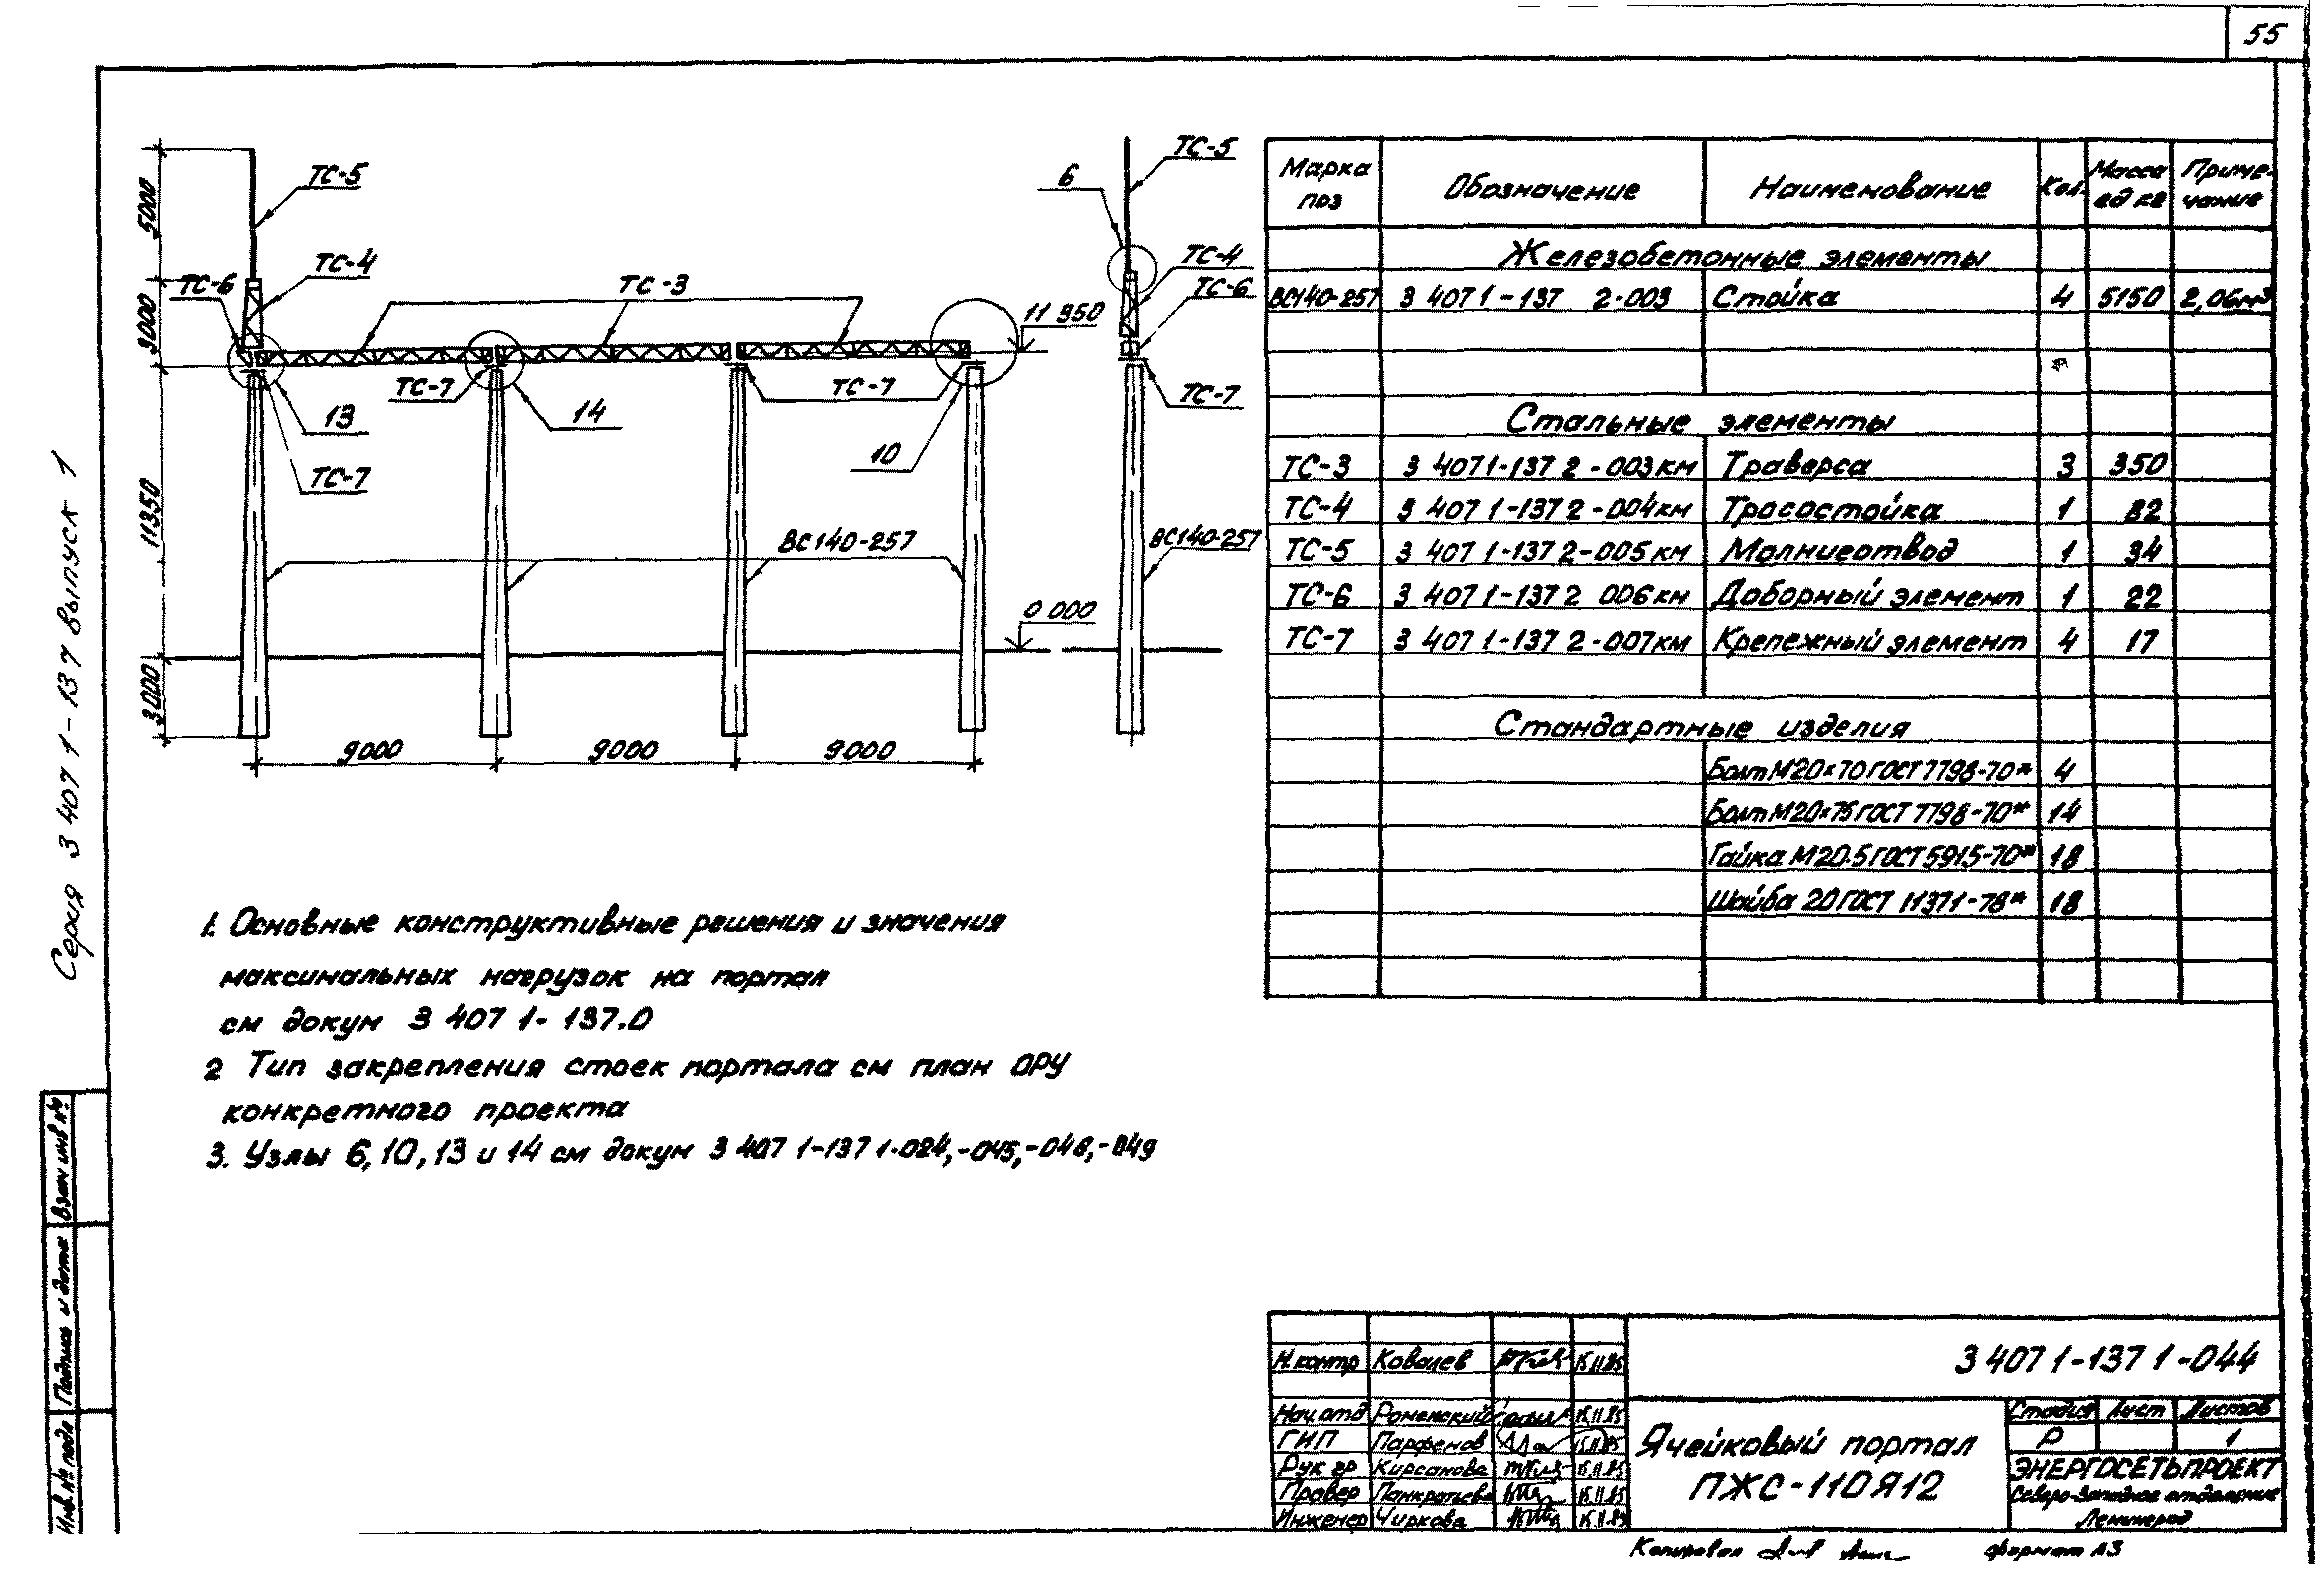 55
Серия 3 407 1-137 выпуск 1
ТС-5
ТС-4
ТС-6
ТС-3
11 350
ТС-7
ТС-7
13
14
10
ТС-7
ВС140-257
0 000
5000
3000
11350
3000
9000
9000
9000
6
ТС-5
ТС-4
ТС-6
ТС-7
ВС140-257
Марка поз Обозначение Наименование Кол. Масса ед кг Приме-чание
Железобетонные элементы
ВС140-257 3 407 1-137 2-003 Стойка 4 5150 2,06м3
Стальные элементы
ТС-3 3 407 1-137 2-003км Траверса 3 350
ТС-4 3 407 1-137 2-004км Тросостойка 1 82
ТС-5 3 407 1-137 2-005км Молниеотвод 1 34
ТС-6 3 407 1-137 2 006км Доборный элемент 1 22
ТС-7 3 407 1-137 2-007км Крепежный элемент 4 17
Стандартные изделия
Болт М20×70 ГОСТ 7798-70* 4
Болт М20×75 ГОСТ 7798-70* 14
Гайка М20.5 ГОСТ 5915-70* 18
Шайба 20 ГОСТ 11371-78* 18
1. Основные конструктивные решения и значения
максимальных нагрузок на портал
см докум 3 407 1-137.0
2 Тип закрепления стоек портала см план ОРУ
конкретного проекта
3. Узлы 6, 10, 13 и 14 см докум 3 407 1-137 1-024,-045,-048,-049
Взам инв №
Подпись и дата
Инв. № подл
Н.контр Ковалев 15.11.85
Нач.отд Роменский 15.11.85
ГИП Парфенов 15.11.85
Рук гр Кирсанова 15.11.85
Провер Панкратьева 15.11.85
Инженер Чиркова 15.11.85
3 407 1-137 1-044
Ячейковый портал
ПЖС-110Я12
Стадия Лист Листов
Р 1
ЭНЕРГОСЕТЬПРОЕКТ
Северо-Западное отделение
Ленинград
Копировал
формат А3